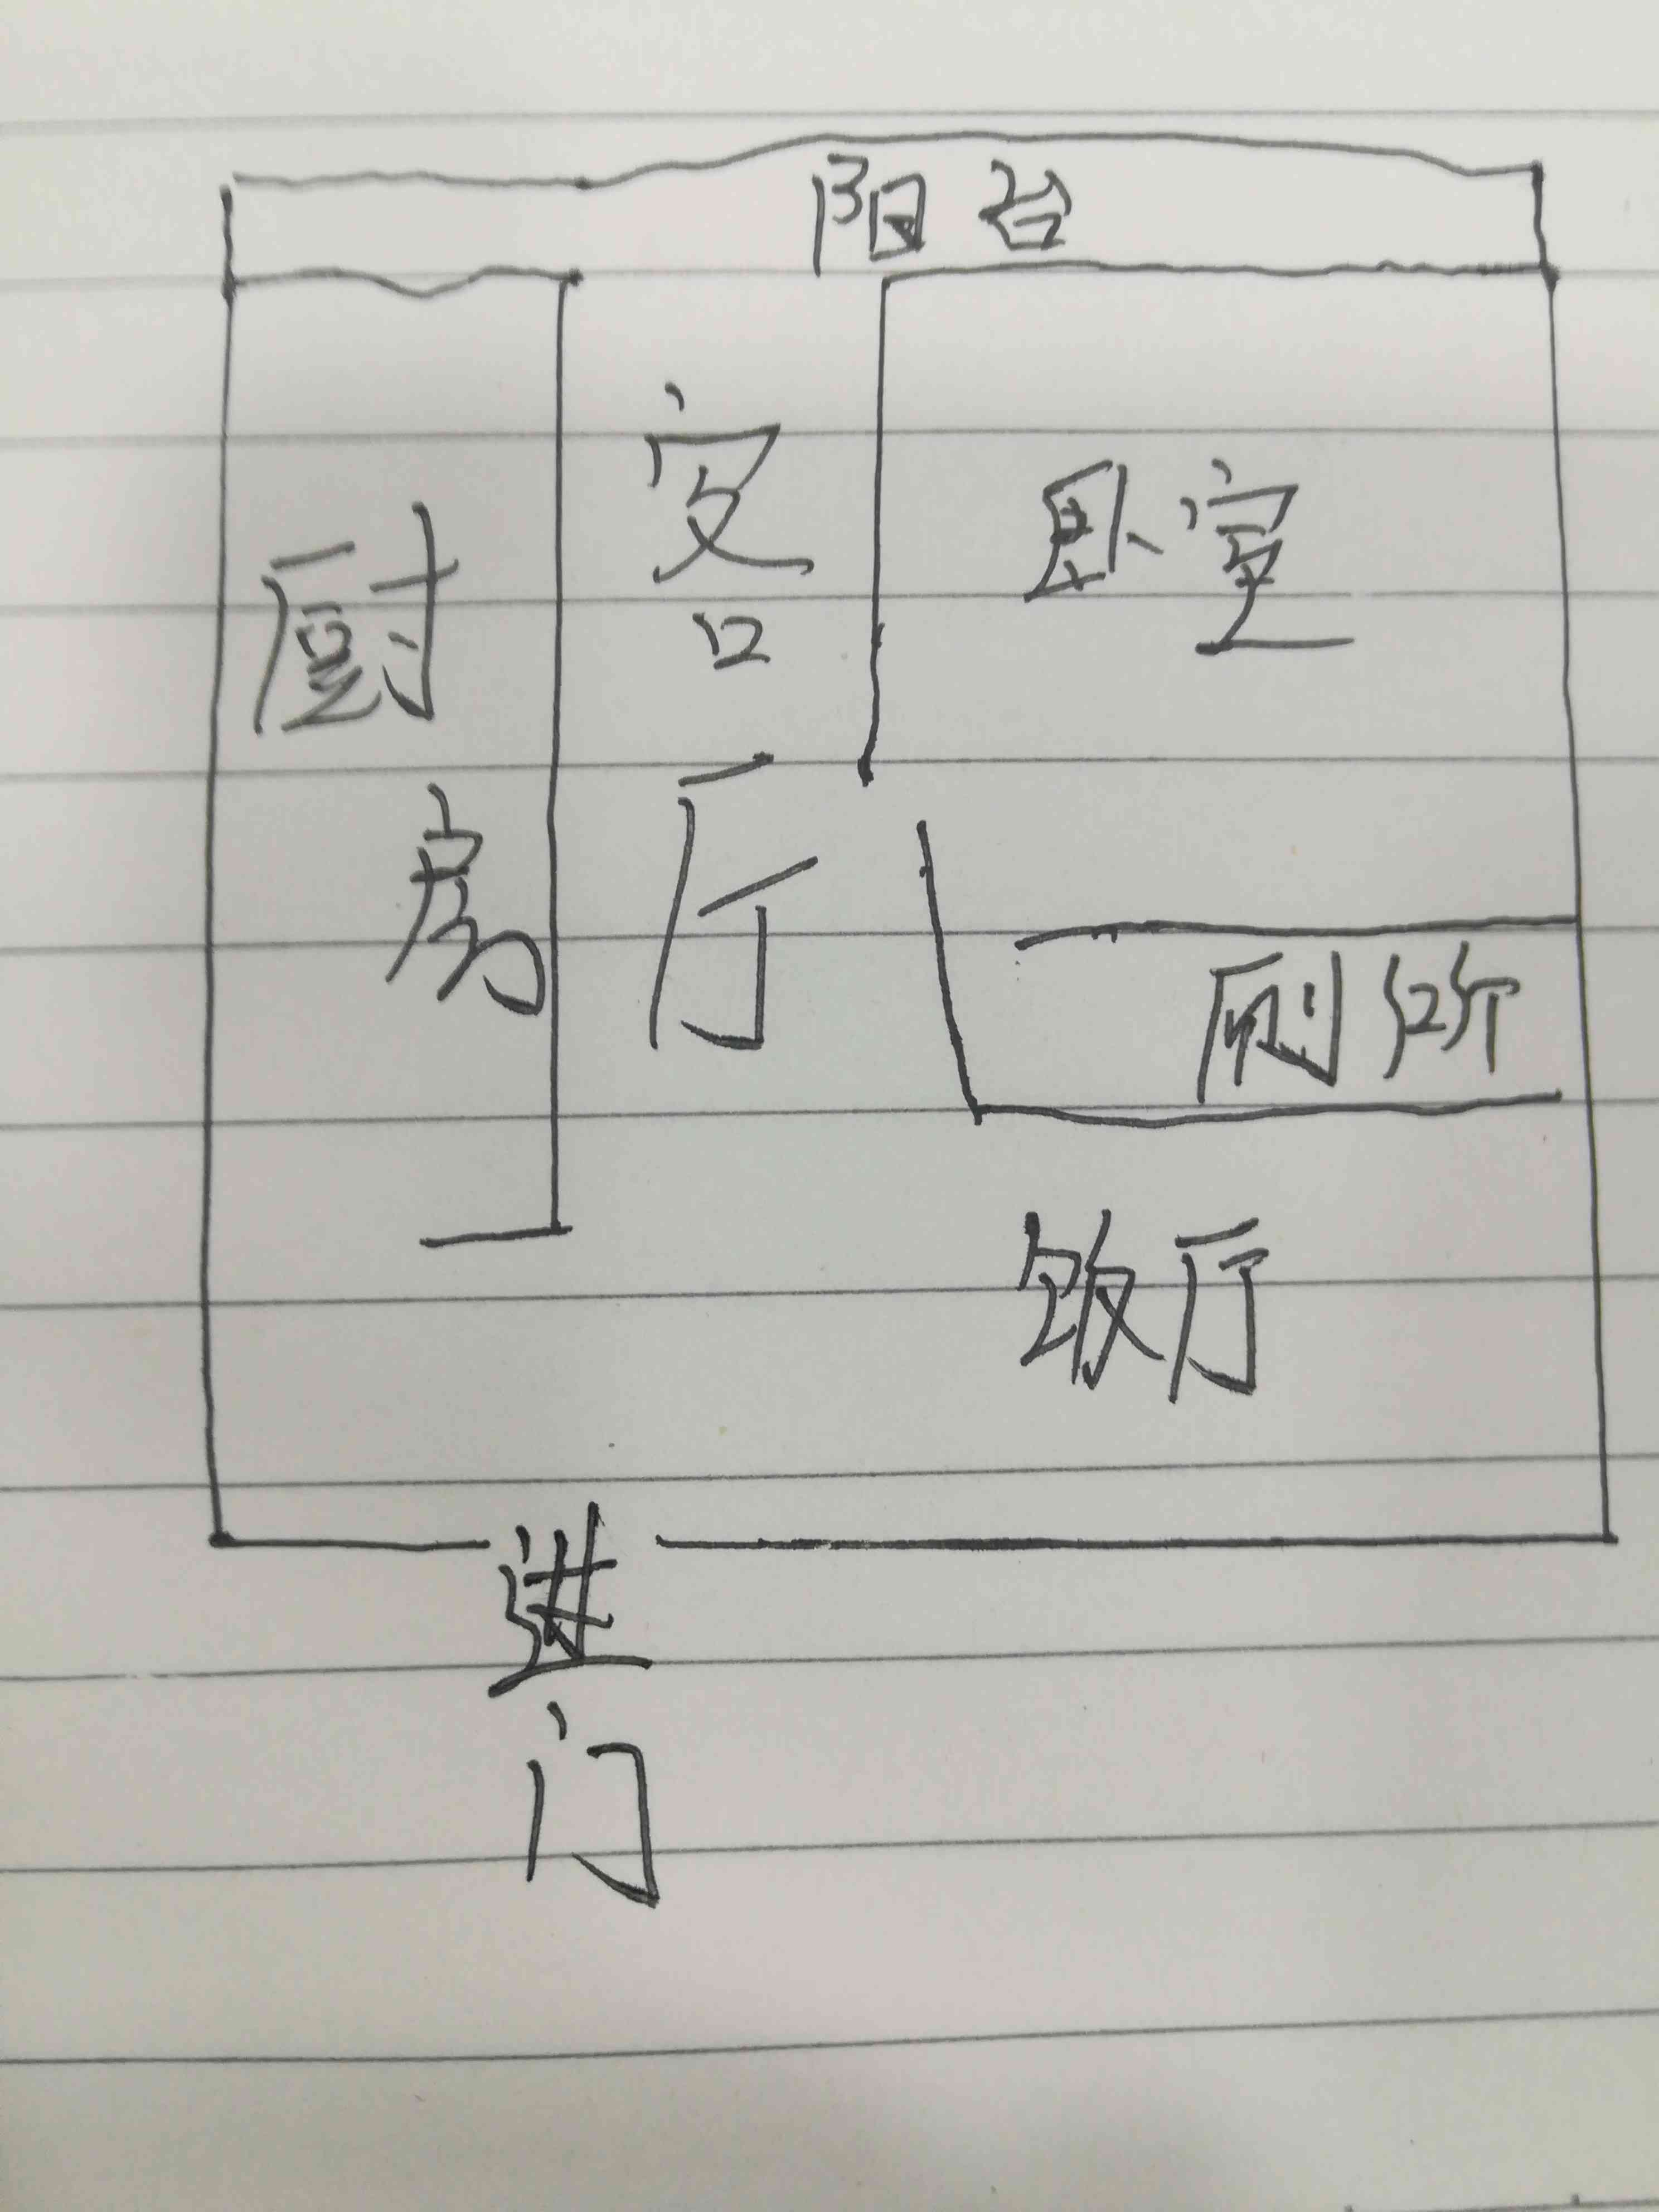 阳台
厨房
客厅
卧室
厕所
饭厅
进门